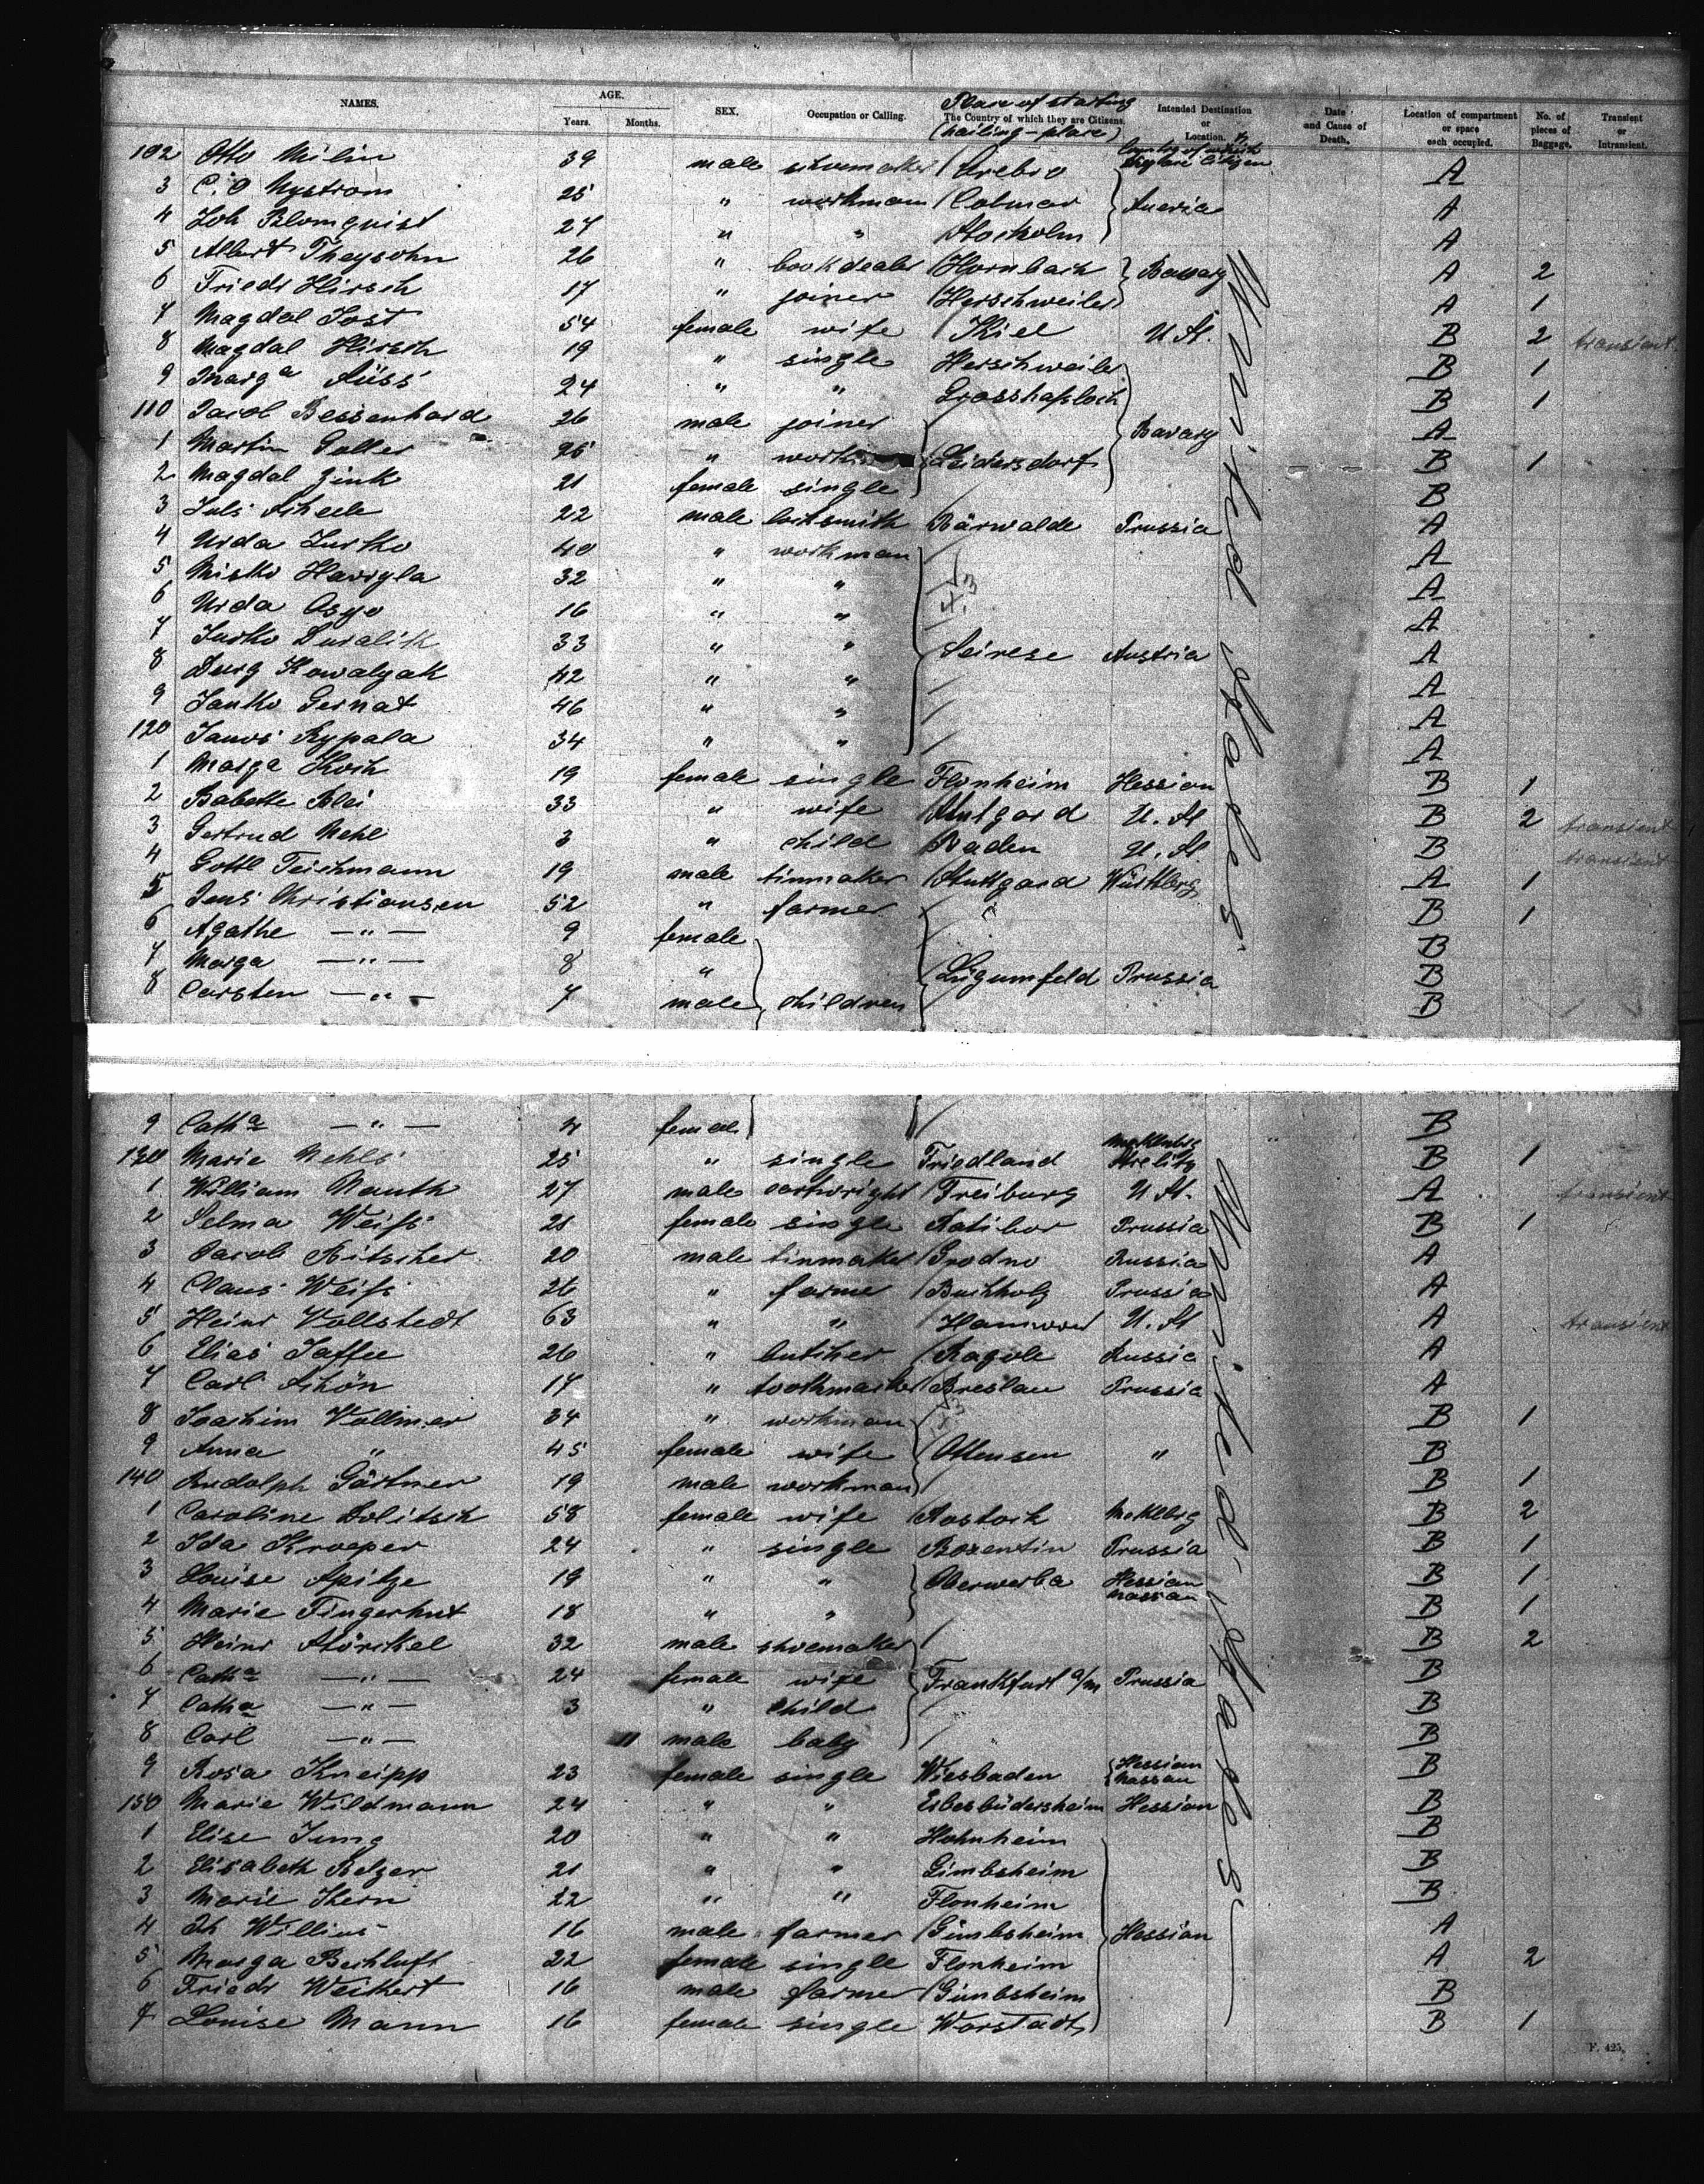 NAMES. AGE. Years. Months. SEX. Occupation or Calling. Place of starting The Country of which they are Citizens. (hailing-place) Intended Destination or Location. Country of which they are Citizen Date and Cause of Death. Location of compartment or space each occupied. No. of pieces of Baggage. Transient or Intransient.
102 Otto Milin 39 male shoemaker Örebro A
3 C. O Nystrom 25 " workman Calmar Sueria A
4 Joh Blomquist 27 " " Stockolm A
5 Albert Theysohn 26 " bookdealer Hornbach Bavary A 2
6 Friedr Hirsch 17 " joiner Herschweiler A 1
7 Magdal Jost 54 female wife Kiel U. St. B 2 transient
8 Magdal Hirsch 19 " single Herschweiler B 1
9 Marga Süss 24 " " Grosshasloch B 1
110 Jacob Bessenhard 26 male joiner Bavary A
1 Martin Galler 25 " Leidersdorf B 1
2 Magdal Zink 21 female single B
3 Juls Scheele 22 male locksmith Bärwalde Prussia A
4 Urda Jurko 40 " workman A
5 Misko Havryla 32 " " A
6 Urda Osyo 16 " " A
7 Jurko Duralik 33 " " Seirese Austria A
8 Durg Kowalyak 42 " " A
9 Janko Gernat 46 " " A
120 Janos Rypala 34 " " A
1 Marga Koch 19 female single Flonheim Hessian B 1
2 Babette Blei 33 " wife Stutgard U. St B 2 transient
3 Gertrud Nehl 3 " child Baden U. St. B transient
4 Gottl Teichmann 19 male tinmaker Stuttgard Württbrg A 1
5 Jens Christiansen 52 " farmer B 1
6 Agathe — " — 9 female B
7 Marga — " — 8 " Lügumfeld Prussia B
8 Carsten — " — 7 male children B
United States
9 Catha — " — 4 female B
130 Marie Nehls 25 " single Friedland Meklenbrg Strelitz B 1
1 William Nauth 27 male cartwright Freiburg U St. A transient
2 Selma Weiss 21 female single Ratibor Prussia B 1
3 Jacob Ritscher 20 male tinmaker Grodno Russia A
4 Claus Weiss 26 " farmer Buchholz Prussia A
5 Heinr Vollstedt 63 " " U. St A transient
6 Elias Jaffee 26 " butcher Ragole Russia A
7 Carl Schön 17 " Breslau Prussia A
8 Joachim Vollmer 34 " workman B 1
9 Anna " 45 female wife Ottensen " B
140 Rudolph Gärtner 19 male workman B 1
1 Caroline Dolitsch 58 female wife Rostock Meklbrg B 2
2 Ida Kroeper 24 " single Bozentin Prussia B 1
3 Louise Apitze 19 " " Oberwerba Hessian Nassau B 1
4 Marie Fingerhut 18 " " B 1
5 Heinr Störckel 32 male shoemaker B 2
6 Catha — " — 24 female wife Frankfurt a/m Prussia B
7 Catha — " — 3 " child B
8 Carl — " — 11 male baby B
9 Rosa Kneipp 23 female single Wiesbaden Hessian Nassau B
150 Marie Wildmann 24 " " Erbesbüdersheim Hessian B
1 Elise Jung 20 " " Hohnheim B
2 Elisabeth Belzer 21 " " Gimbsheim B
3 Marie Kern 22 " " Flonheim B
4 Ph Willius 16 male farmer Gimbsheim Hessian A
5 Marga Bechluft 22 female single Flonheim A 2
6 Friedr Weikert 16 male farmer Gimbsheim B
7 Louise Mann 16 female single Worstadt B 1
United States
F. 425.